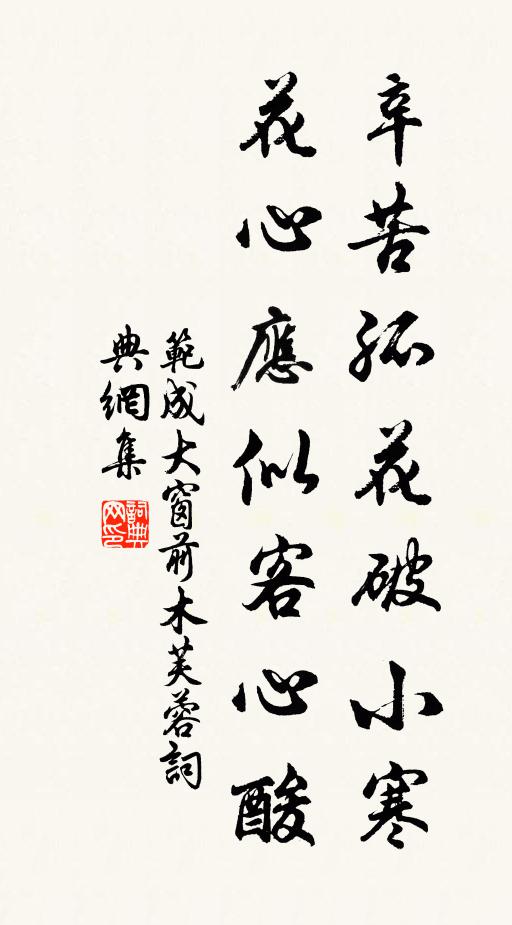 辛苦孤花破小寒
花心應似客心酸
範成大窗前木芙蓉詞
典網集
詞典网印